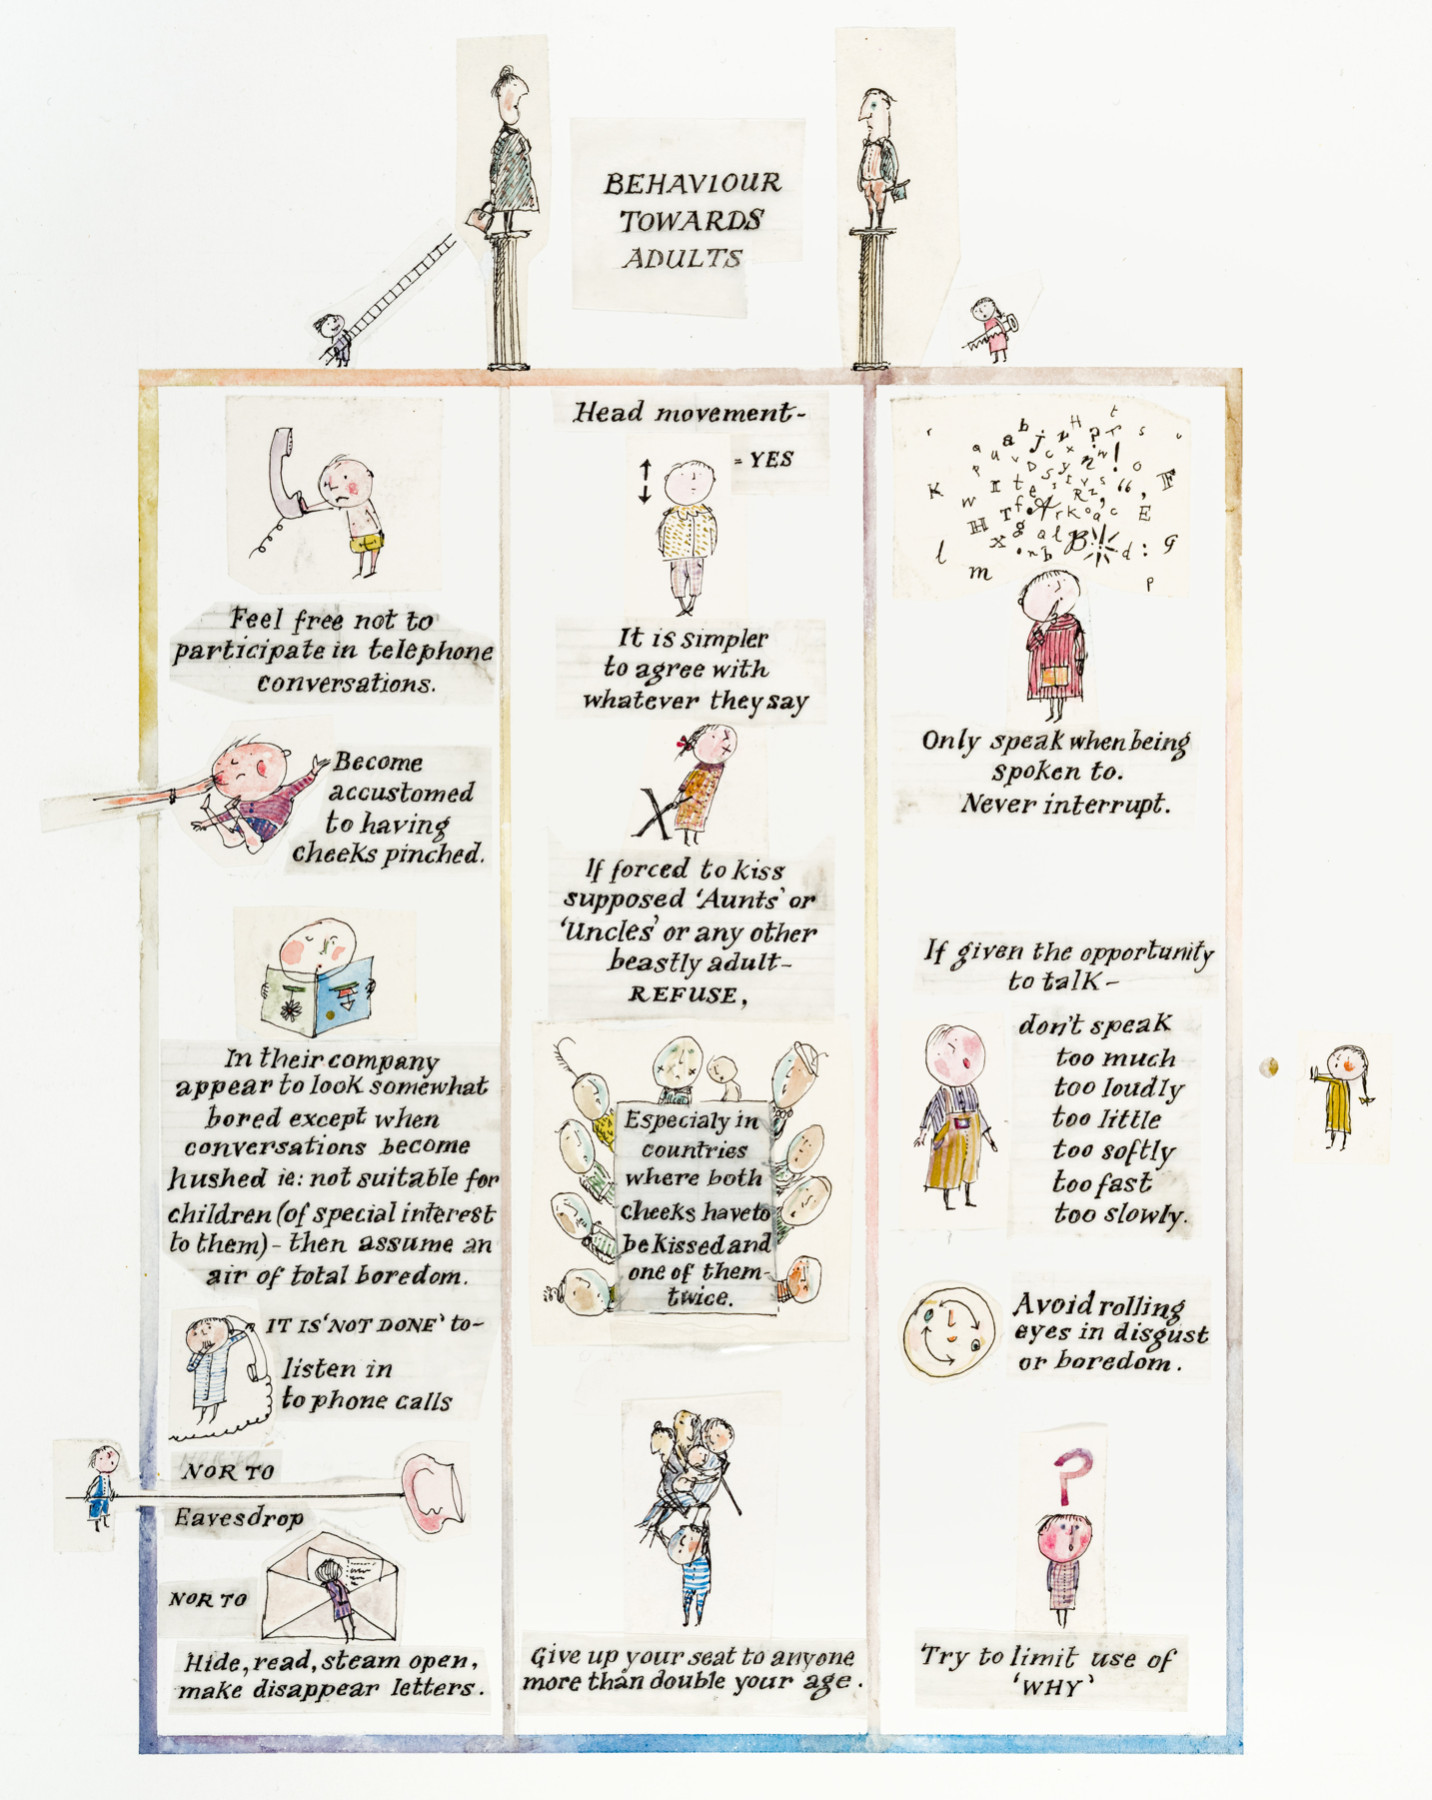 BEHAVIOUR
TOWARDS
ADULTS
Feel free not to
participate in telephone
conversations.
Become
accustomed
to having
cheeks pinched.
In their company
appear to look somewhat
bored except when
conversations become
hushed ie: not suitable for
children (of special interest
to them) - then assume an
air of total boredom.
IT IS 'NOT DONE' to-
listen in
to phone calls
NOR TO
Eavesdrop
NOR TO
Hide, read, steam open,
make disappear letters.
Head movement-
= YES
It is simpler
to agree with
whatever they say
If forced to kiss
supposed 'Aunts' or
'Uncles' or any other
beastly adult-
REFUSE,
Especialy in
countries
where both
cheeks have to
be kissed and
one of them-
twice.
Give up your seat to anyone
more than double your age.
Only speak when being
spoken to.
Never interrupt.
If given the opportunity
to talk-
don't speak
too much
too loudly
too little
too softly
too fast
too slowly.
Avoid rolling
eyes in disgust
or boredom.
?
Try to limit use of
'WHY'